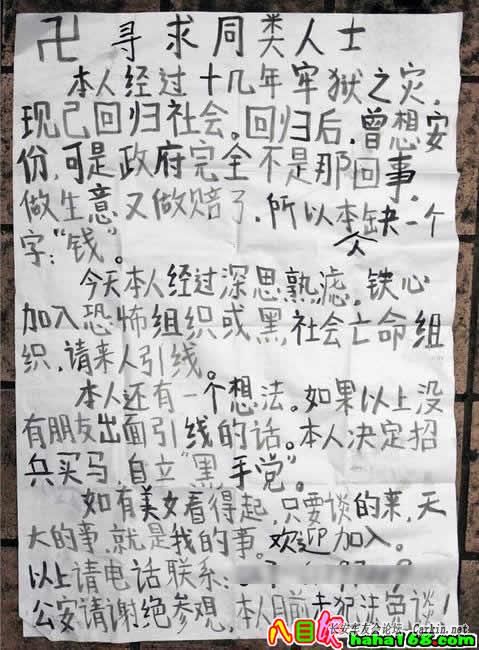 卍寻求同类人士
本人经过十几年牢狱之灾,
现已回归社会。回归后,曾想安
份,可是政府完全不是那回事。
做生意又做赔了,所以本人缺一个
字:“钱”。
今天本人经过深思熟滤,铁心
加入恐怖组织或黑社会亡命组
织,请来人引线。
本人还有一个想法。如果以上没
有朋友出面引线的话。本人决定招
兵买马,自立“黑手党”。
如有美女看得起,只要谈的来,天
大的事,就是我的事。欢迎加入。
以上请电话联系:
公安请谢绝参观,本人目前未犯法免谈!
长安车友会论坛 Carkin.net
八目妖
haha168.com